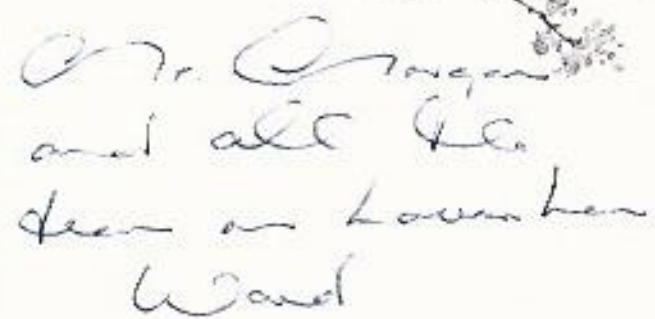 Mr. Morgan
and all the
team on Lavenham
Ward